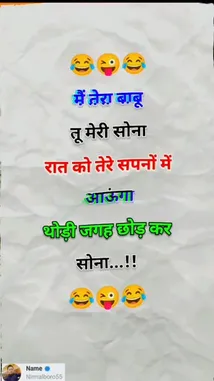 😂😜😂
मैं तेरा बाबू
तू मेरी सोना
रात को तेरे सपनों में
आऊंगा
थोड़ी जगह छोड़ कर
सोना...!!
😂😜😂
Name